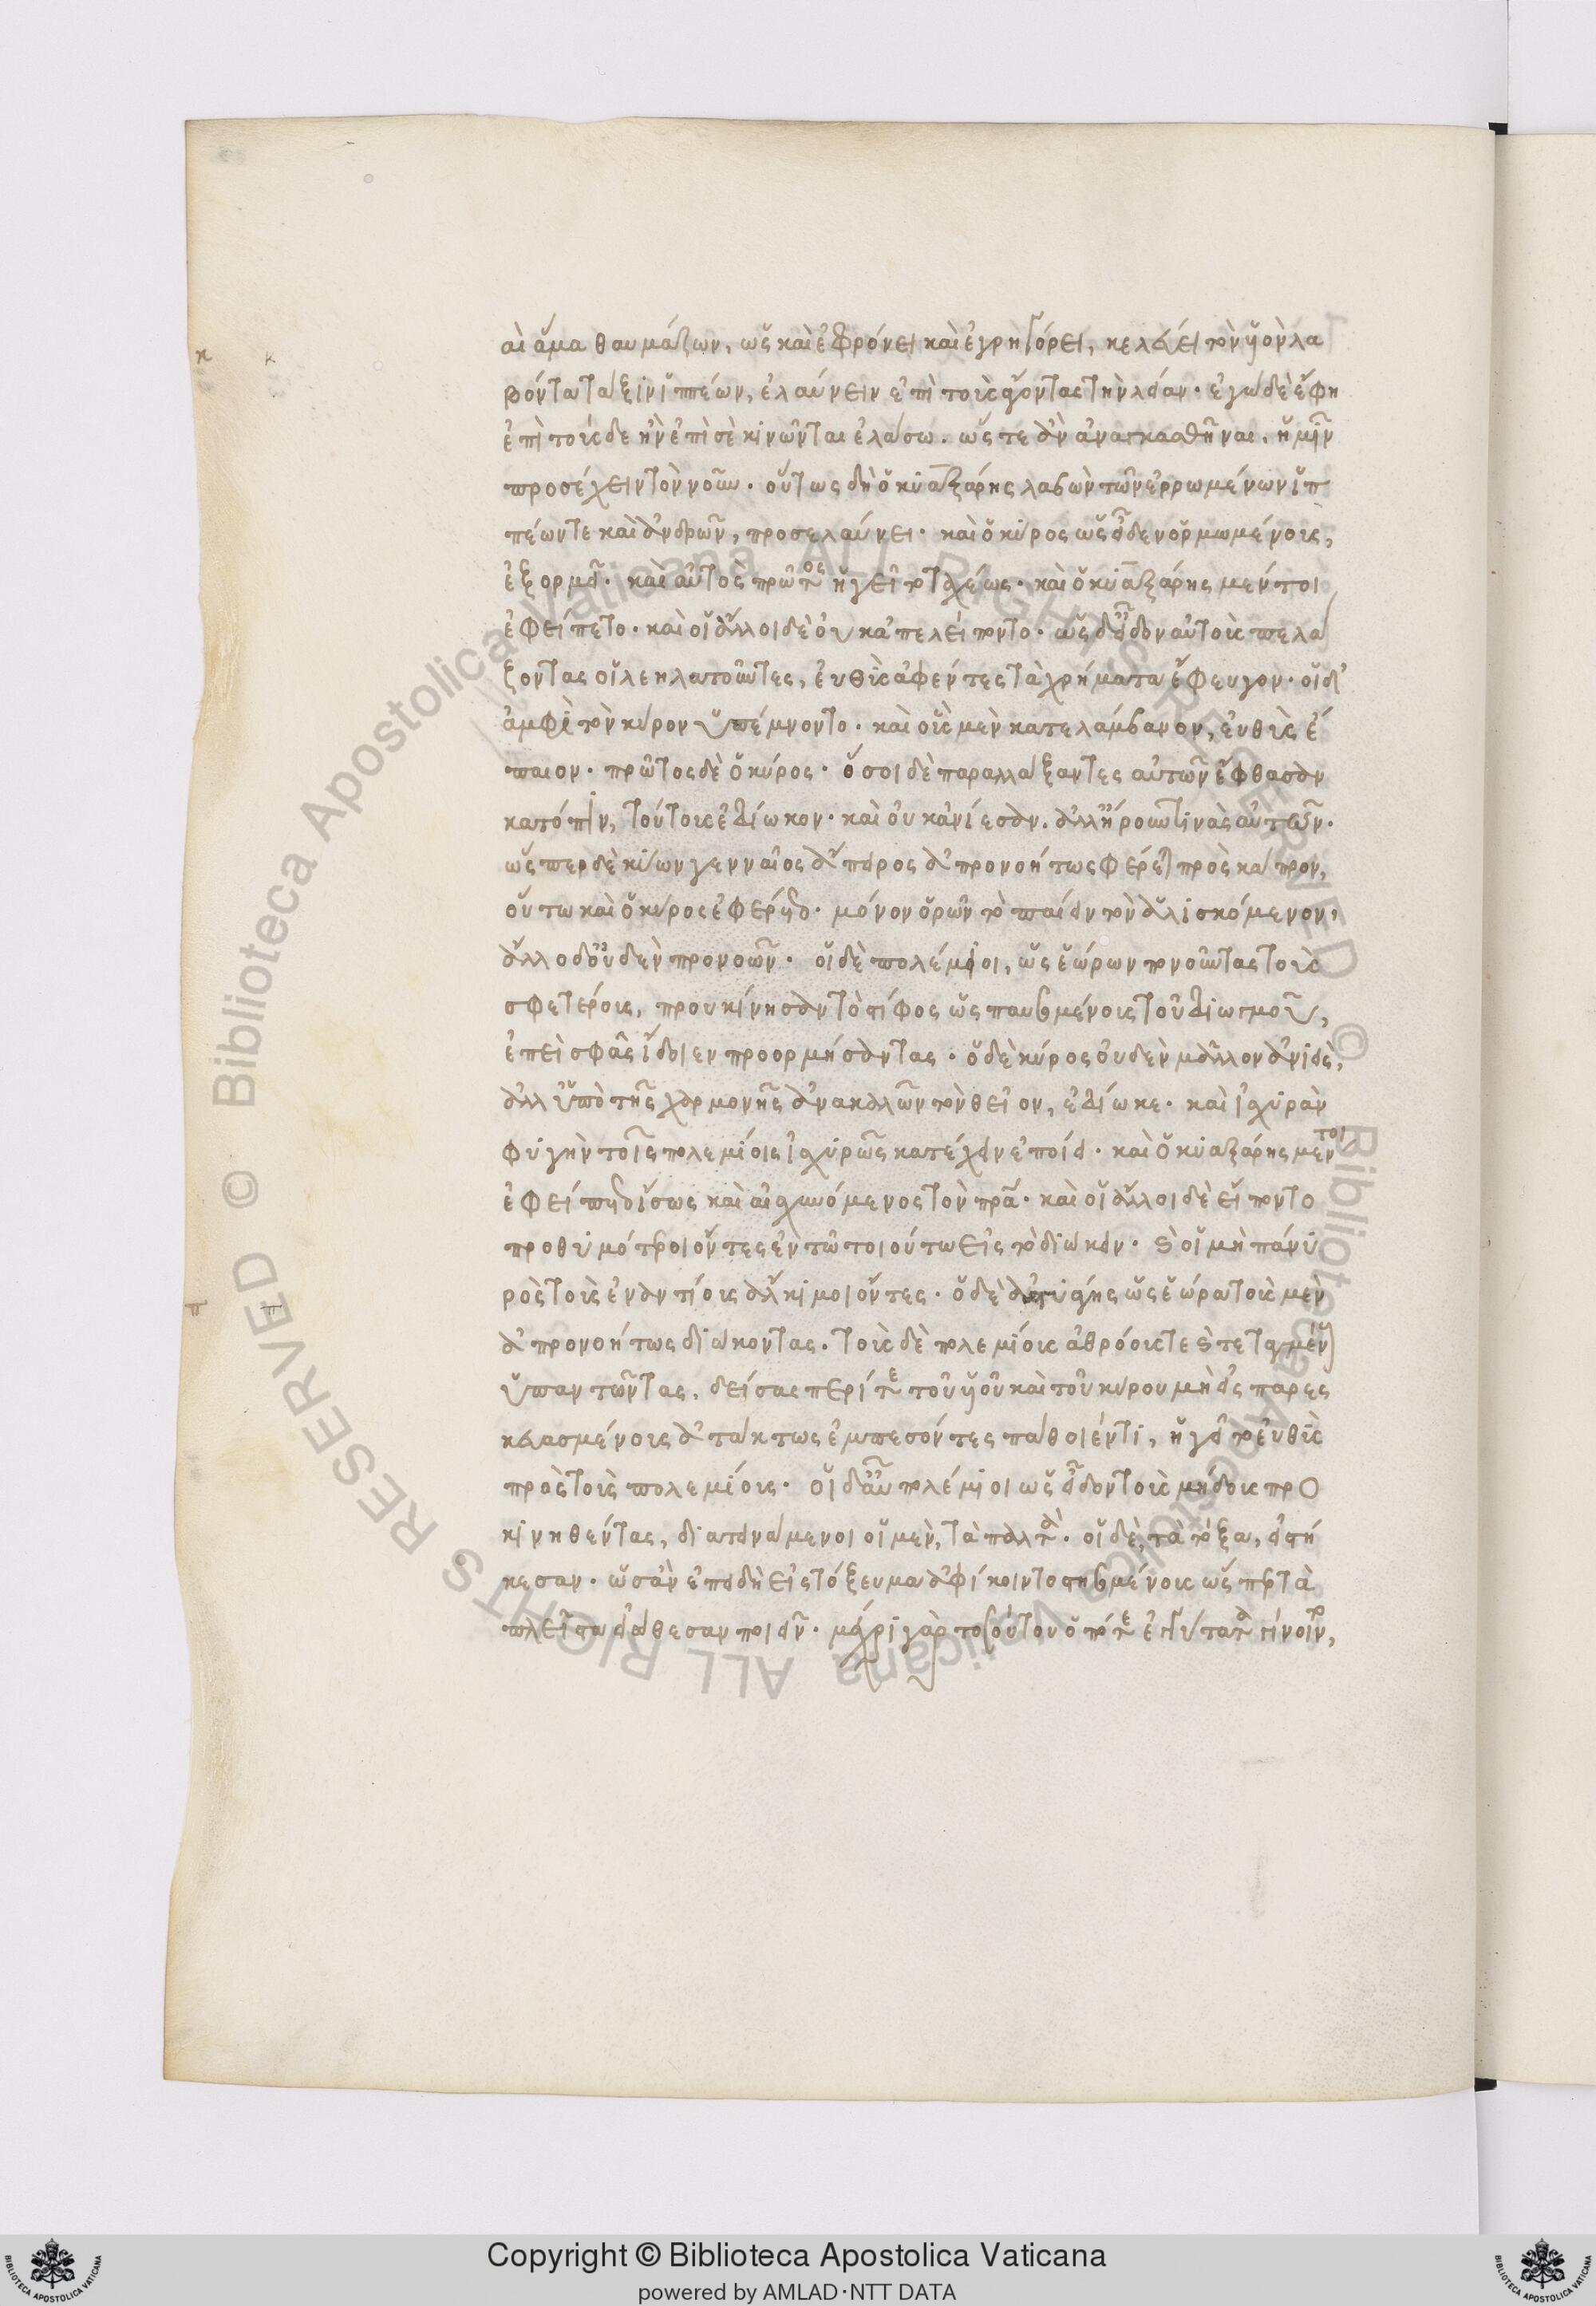 αι ἅμα θαυμάζων, ὡς καὶ ἐφρόνει καὶ ἐγρηγόρει, κελεύει τὸν υἱὸν λα
βόντα τάξιν ἱππέων, ἐλαύνειν ἐπὶ τοὺς ἄγοντας τὴν λείαν· ἐγὼ δὲ ἔφη
ἐπὶ τούσδε ἢν ἐπὶ σὲ κινῶνται ἐλάσω. ὥστε ἀναγκασθῆναι, ἡμῖν
προσέχειν τὸν νοῦν· οὕτως δὴ ὁ κυαξάρης λαβὼν τῶν ἐρρωμένων ἵπ
πέων τε καὶ ἀνδρῶν, προσελαύνει· καὶ ὁ κύρος ὡς εἶδεν ὁρμωμένους,
ἐξορμᾷ· καὶ αὐτὸς πρῶτος ἡγεῖτο ταχέως· καὶ ὁ κυαξάρης μέντοι
ἐφείπετο· καὶ οἱ ἄλλοι δὲ οὐκ ἀπελείποντο· ὡς δὲ εἶδον αὐτοὺς πελά
ζοντας οἱ λεηλατοῦντες, εὐθὺς ἀφέντες τὰ χρήματα ἔφευγον· οἱ δ'
ἀμφὶ τὸν κύρον ὑπέμνοντο· καὶ οὓς μὲν κατελάμβανον, εὐθὺς ἔ
παιον· πρῶτος δὲ ὁ κύρος· ὅσοι δὲ παραλλάξαντες αὐτῶν ἔφθασαν
κατόπιν, τούτους ἐδίωκον· καὶ οὐκ ἀνίεσαν. ἀλλ' ἥρουν τινὰς αὐτῶν·
ὥσπερ δὲ κύων γενναῖος ἄπειρος ἀπρονοήτως φέρεται πρὸς κάπρον,
οὕτω καὶ ὁ κύρος ἐφέρετο· μόνον ὁρῶν τὸ παίειν τὸν ἁλισκόμενον,
ἄλλο δ' οὐδὲν προνοῶν· οἱ δὲ πολέμιοι, ὡς ἑώρων πονοῦντας τοὺς
σφετέρους, προυκίνησαν τὸ στίφος ὡς παυσομένους τοῦ διωγμοῦ,
ἐπεὶ σφᾶς ἴδοιεν προορμήσαντας· ὁ δὲ κύρος οὐδὲν μᾶλλον ἀνίει,
ἀλλ' ὑπὸ τῆς χαρμονῆς ἀνακαλῶν τὸν θεῖον, ἐδίωκε· καὶ ἰσχυρὰν
φυγὴν τοῖς πολεμίοις ἰσχυρῶς κατέχων ἐποίει· καὶ ὁ κυαξάρης μέντοι
ἐφείπετο ἴσως καὶ αἰσχυνόμενος τὸν πρα· καὶ οἱ ἄλλοι δὲ εἵποντο
προθυμότεροι ὄντες ἐν τῷ τοιούτῳ εἰς τὸ διώκειν· καὶ οἱ μὴ πάνυ
ρὸς τοὺς ἐναντίους ἄλκιμοι ὄντες· ὁ δὲ ἀστυάγης ὡς ἑώρα τοὺς μὲν
ἀπρονοήτως διώκοντας. τοὺς δὲ πολεμίους ἀθρόους τε καὶ τεταγμένους
ὑπαντῶντας, δείσας περί τε τοῦ υἱοῦ καὶ τοῦ κύρου μὴ εἰς παρες
κευασμένους ἀτάκτως ἐμπεσόντες πάθοιέν τι, ἡγεῖτο εὐθὺς
πρὸς τοὺς πολεμίους· οἱ δ' αὖ πολέμιοι ὡς εἶδον τοὺς μήδους προ
κινηθέντας, διατεινάμενοι οἱ μὲν, τὰ παλτά· οἱ δὲ, τὰ τόξα, εἱστή
κεσαν· ὡς ἂν ἐπειδὴ εἰς τόξευμα ἀφίκοιντο στησομένους ὥσπερ τὰ
πλεῖστα εἰώθεσαν ποιεῖν· μέχρι γὰρ τοσούτου ὁπότε ἐγγύτατα γίνοιντο,